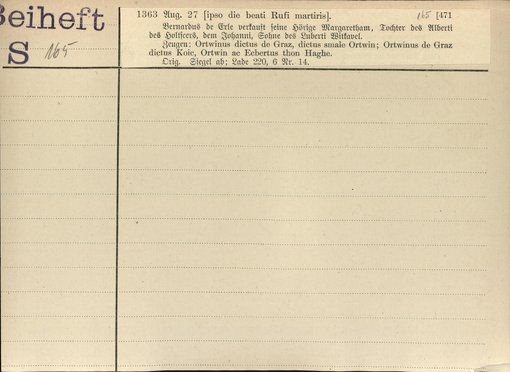 Beiheft
S 165
1363 Aug. 27 [ipso die beati Rufi martiris]. 165 [471
Bernardus de Erle verkauft seine Hörige Margaretham, Tochter des Alberti
des Holtscers, dem Johanni, Sohne des Luberti Witkavel.
Zeugen: Ortwinus dictus de Graz, dictus smale Ortwin; Ortwinus de Graz
dictus Koic, Ortwin ac Ecbertus thon Haghe.
Orig. Siegel ab; Lade 220, 6 Nr. 14.